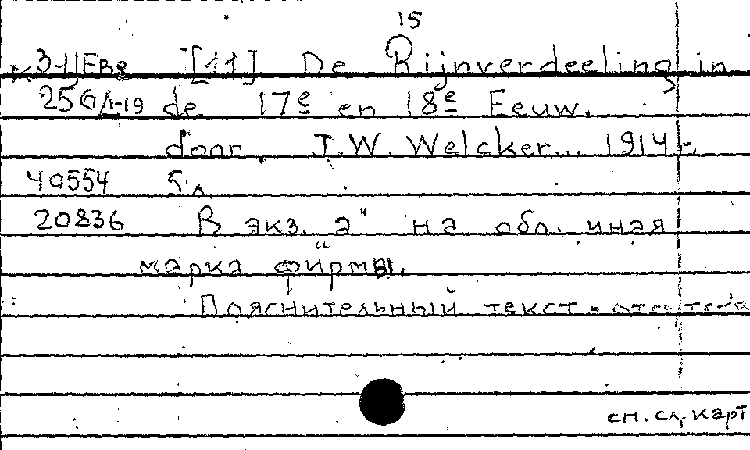 15
К 3-ЦЕВg [11] De Rijnverdeeling in
256/1-19 de 17e en 18e Eeuw.
door J.W. Welcker... 1914 г.
40554 5 л
20836 В экз. "а" на обл. иная
марка фирмы.
Пояснительный текст -
см. сл. карт